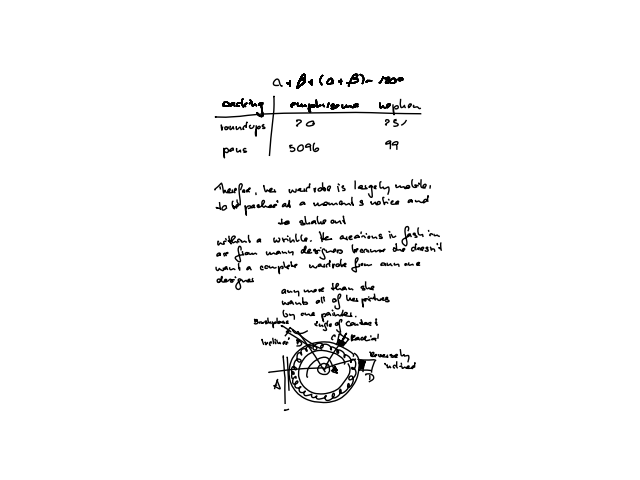 α + β + (α + β) = 180°
roundups 70
pens 5096 99
Therefore, her wardrobe is largely mobile,
to be packed at a moment's notice and
to shake out
without a wrinkle. Her creations in fashion
are from many designers because she doesn't
want a complete wardrobe from any one
designer
any more than she
wants all of her pictures
by one painter.
Angle of contact
B
C
Inversely
inclined
A
D